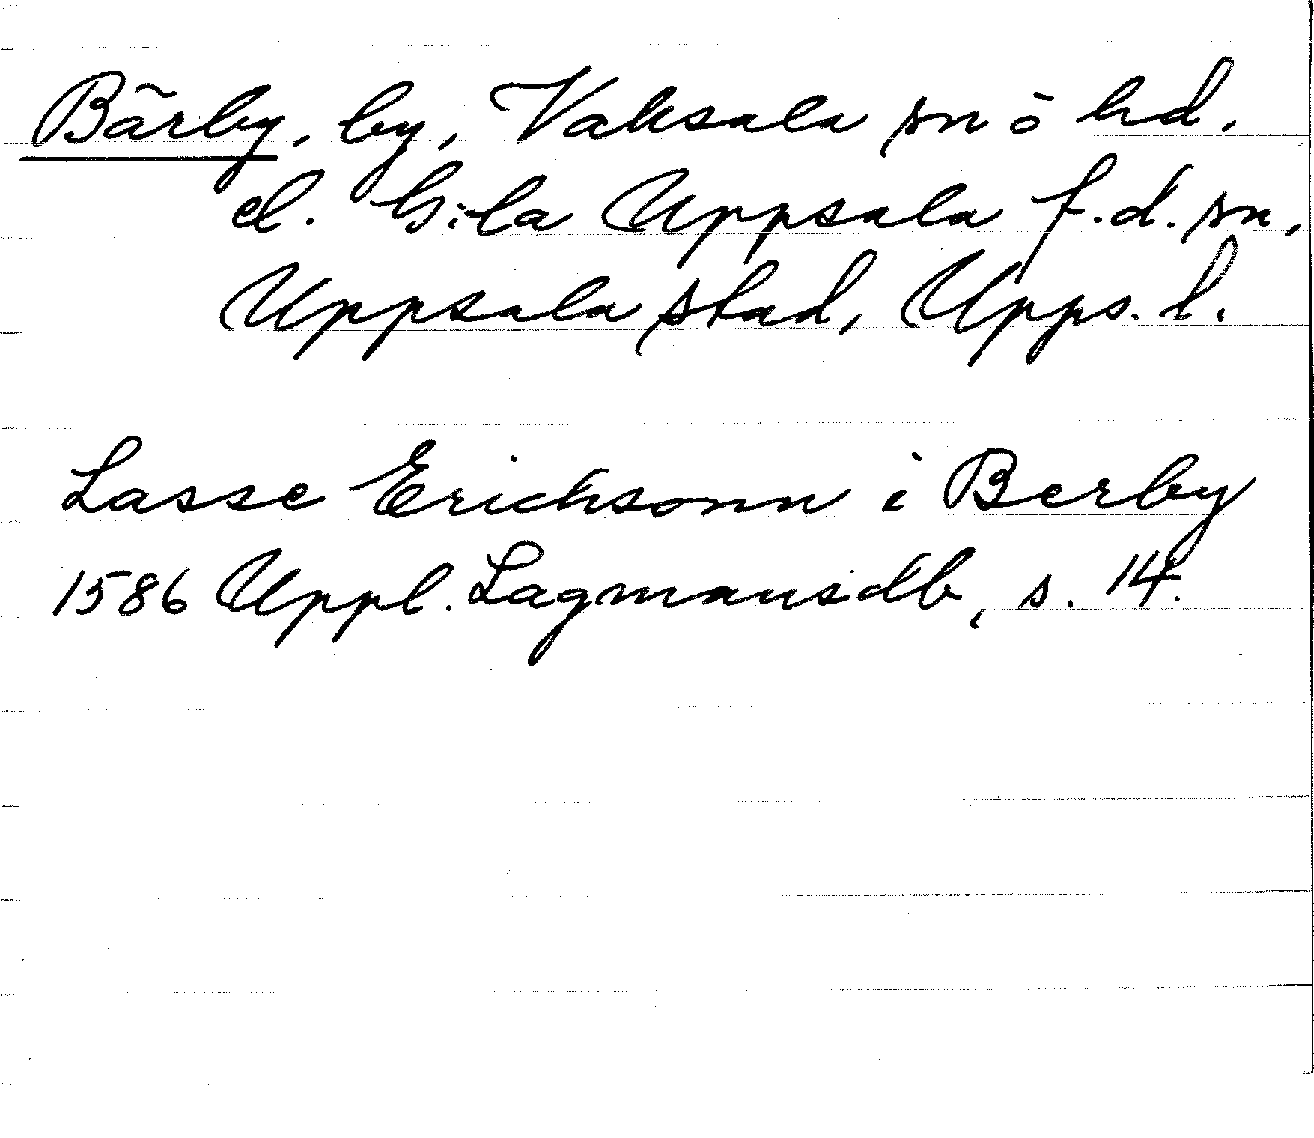 Bärby, by, Vaksala sn o hd.
el. G:la Uppsala f.d. sn,
Uppsala stad, Upps. l.
Lasse Erichsonn i Berby
1586 Uppl. Lagmansdb, s. 14.